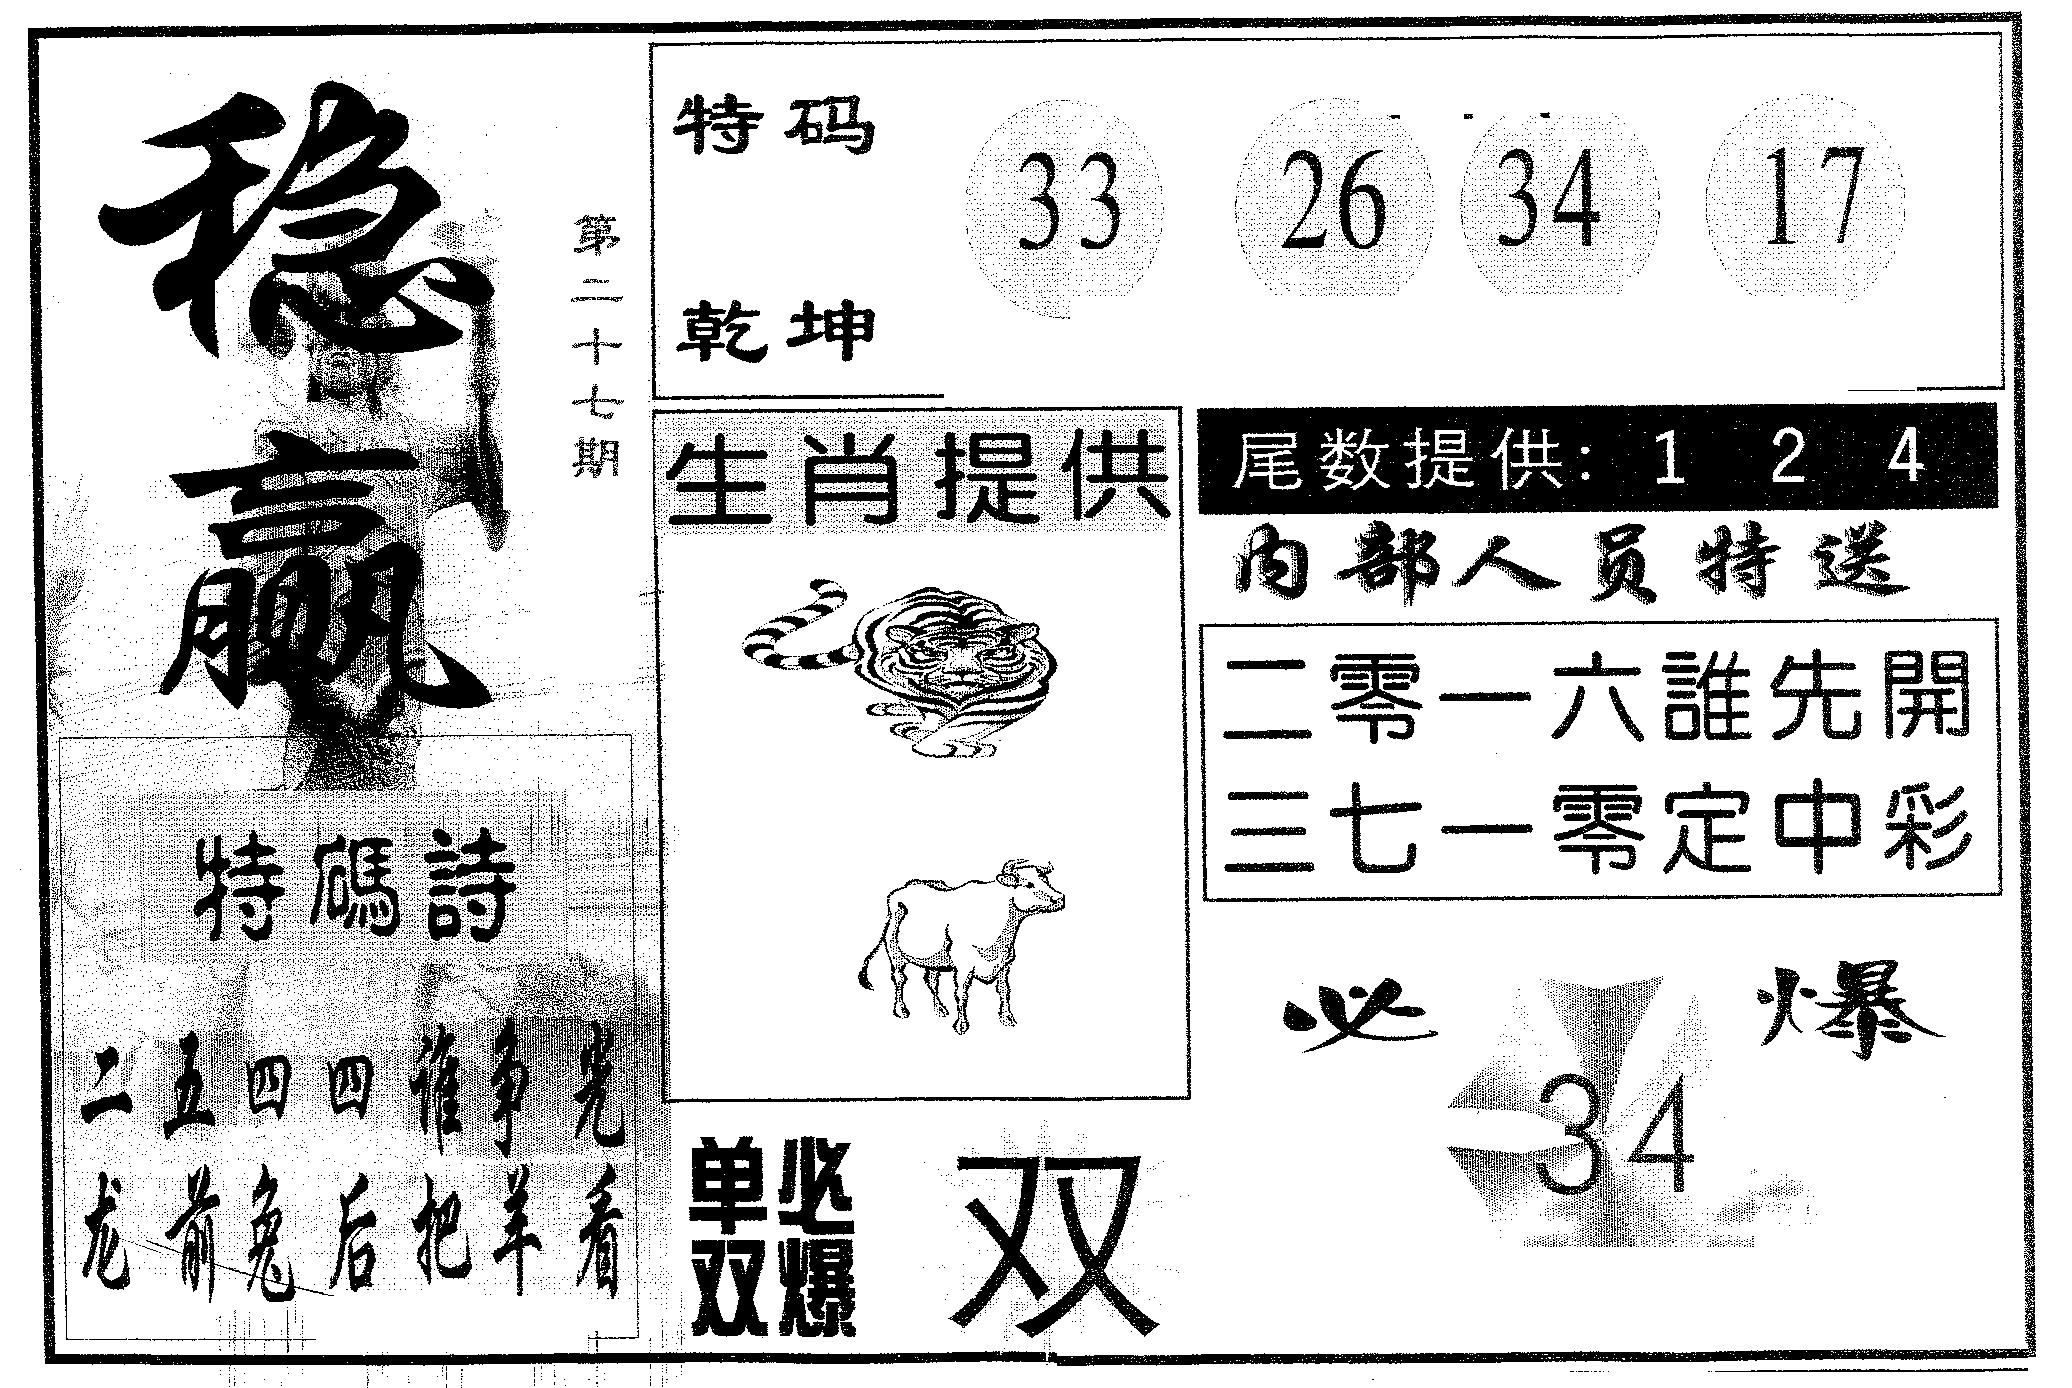 稳赢
第二十七期
特码
乾坤
33 26 34 17
生肖提供
尾数提供: 1 2 4
内部人员特送
二零一六誰先開
三七一零定中彩
特碼詩
二五四四谁争光
龙前兔后把羊看
单双
必爆
双
必爆
34